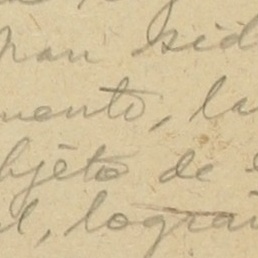 han sid
mento, la
objéto de
l, logra